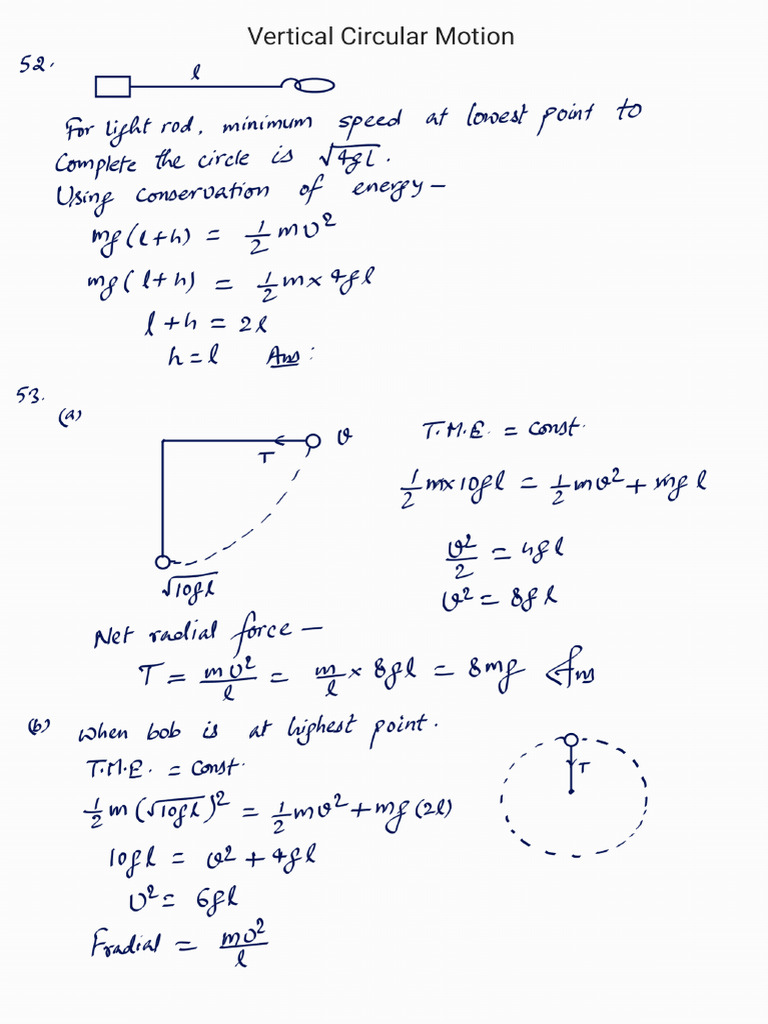 Vertical Circular Motion
52.
l
For light rod, minimum speed at lowest point to
Complete the circle is √4gl.
Using conservation of energy –
mg(l+h) = 1/2 mv²
mg(l+h) = 1/2 m× 4gl
l+h = 2l
h=l Ans:
53.
(a)
T
v
√10gl
T.M.E. = const.
1/2 m×10gl = 1/2 mv² + mgl
v²/2 = 4gl
v² = 8gl
Net radial force –
T = mv²/l = m/l × 8gl = 8mg Ans
(b) when bob is at highest point.
T.M.E. = const.
1/2 m(√10gl)² = 1/2 mv² + mg(2l)
10gl = v² + 4gl
v² = 6gl
Fradial = mv²/l
T